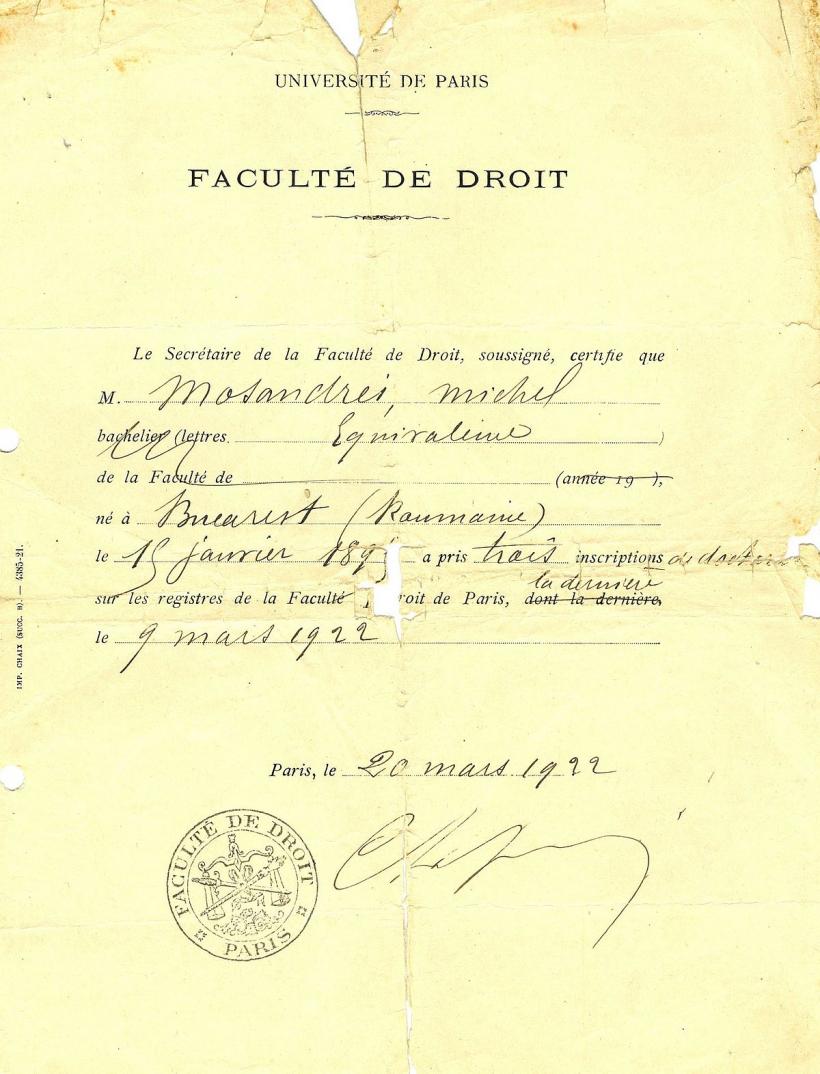 UNIVERSITÉ DE PARIS
FACULTÉ DE DROIT
Le Secrétaire de la Faculté de Droit, soussigné, certifie que
M. Mosandrei, Michel
bachelier (lettres Equivalence )
de la Faculté de (année 19 ),
né à Bucarest (Roumanie)
le 15 janvier 189 a pris trois inscriptions de doctorat
la dernière
sur les registres de la Faculté roit de Paris, dont la dernière,
le 9 mars 1922
Paris, le 20 mars 1922
FACULTÉ DE DROIT
PARIS
IMP. CHAIX (SUCC. B). — 4385-21.